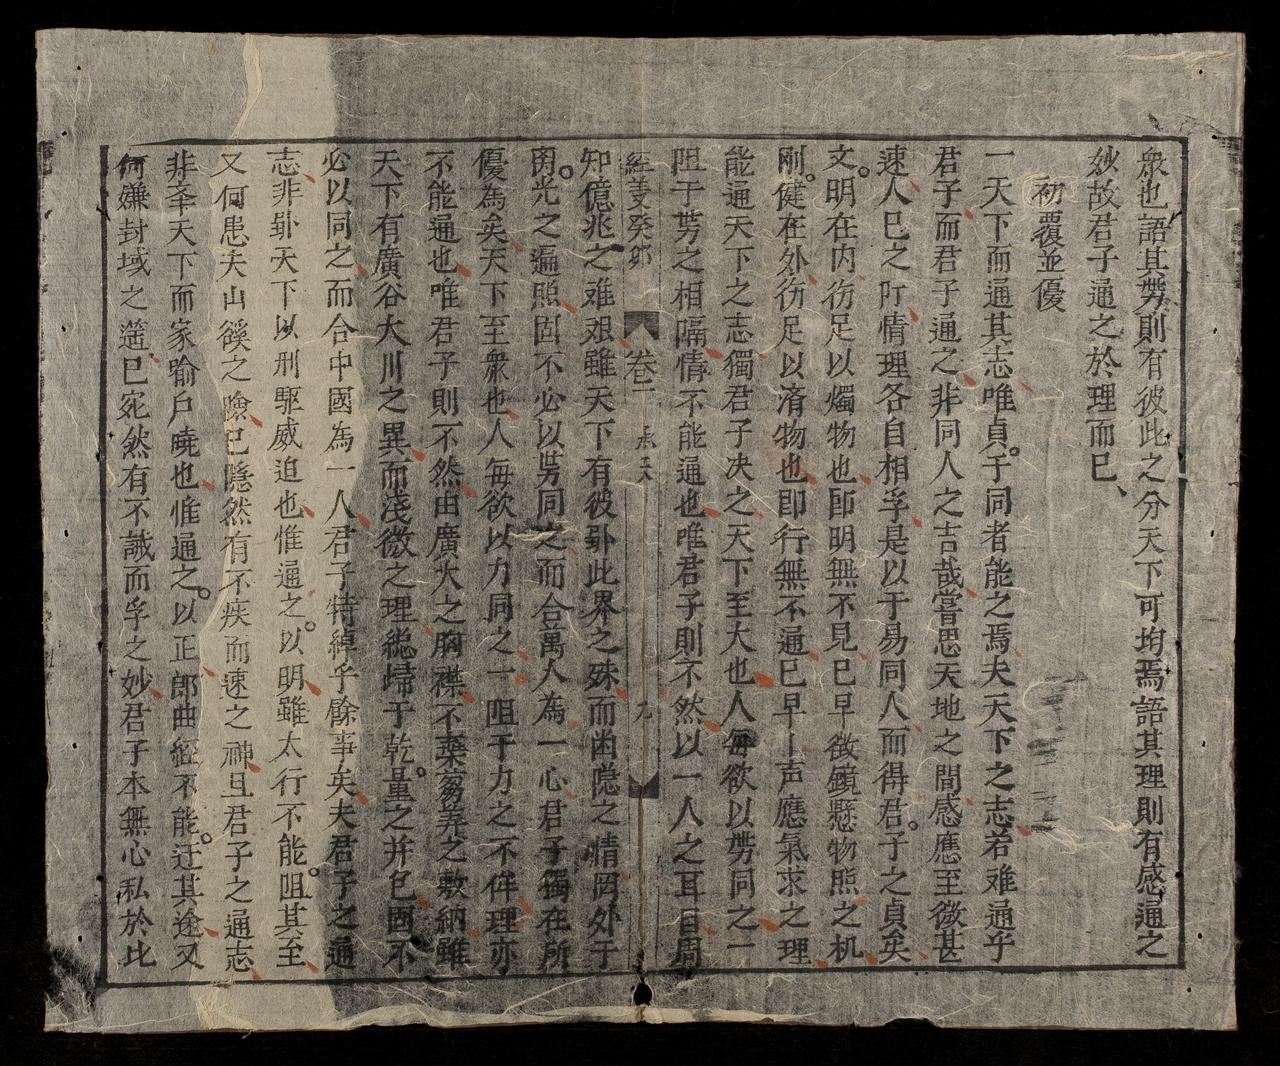 衆也語其勢則有彼此之分天下可均焉語其理則有感通之
妙故君子通之於理而已
初覆並優
一天下而通其志唯貞于同者能之焉夫天下之志若难通乎
君子而君子通之非同人之吉哉嘗思天地之間感應至微甚
速人巳之际情理各自相孚是以于易同人而得君子之貞矣
文明在内彷足以燭物也即明無不見巳早微鏡懸物照之机
刚健在外彷足以済物也即行無不通巳早声應氣求之理
能通天下之志獨君子决之天下至大也人每欲以勢同之一
阻于势之相隔情不能通也唯君子則不然以一人之耳目周
經義癸卯 卷二 承天 九
知億兆之难艰雖天下有彼卧此界之殊而幽隐之情罔外于
离光之遍照固不必以势同之而合萬人為一心君子獨在所
優為矣天下至衆也人每欲以力同之一阻于力之不侔理亦
不能通也唯君子則不然由廣大之胸襟不棄蒭荛之敷納雖
天下有廣谷大川之異而淺微之理総歸于乾量之并包固不
必以同之而合中國為一人君子特綽乎餘事矣夫君子之通
志非卧天下以刑驱威迫也惟通之以明雖太行不能阻其至
又何患夫山谿之險巳隱然有不疾而速之神且君子之通志
非夆天下而家喻户曉也惟通之以正郎曲經不能迂其途又
何嫌封域之 巳宛然有不誠而孚之妙君子本無心私於比